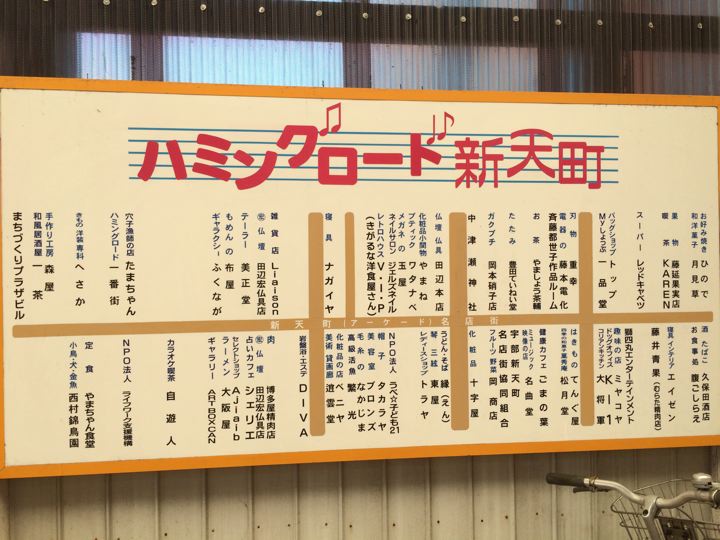 ハミングロード新天町
お好み焼き ひので
和洋菓子 月見草
果物 藤延果実店
喫茶 KAREN
スーパー レッドキャベツ
バッグショップ トップ
Myしょうぶ 一品堂
刃物 重幸
電器の 藤本電化
斉藤都世子作品ルーム
お茶 やましょう茶輔
たたみ 豊田ていねい堂
ガクブチ 岡本硝子店
中津瀬神社
仏壇仏具 田辺本店
化粧品小間物 やまね
ブティック ワタナベ
メガネの 玉屋
ネイルサロン ジェルスネイル
レトロハウス V・I・P
(きがるな洋食屋さん)
寝具 ナガイヤ
雑貨店 Liaison
㊓仏壇 田辺宏仏具店
テーラー 美正堂
もめんの 布屋
ギャラクシー ふくなが
穴子漁師の店 たまちゃん
ハミングロード 一番街
きもの洋装専科 へさか
手作り工房 森屋
和風居酒屋 一茶
まちづくりプラザビル
新天町(アーケード)名店街
酒たばこ 久保田酒店
お食事処 腹ごしらえ
寝具インテリア エイゼン
藤井青果(むらた精肉店)
獅四丸エンターテインメント
趣味の店 ミヤコヤ
ドッグオフィス K-1
コリアンキッチン 大将軍
はきもの てんぐ屋
松月堂
健康カフェ ごまの葉
ミュージック映像の店 名曲堂
宇部新天町
名店街協同組合
フルーツ野菜 岡商店
化粧品 十字屋
うどん・そば 縁(えん)
琴三絃 東屋
レディースショップ トラヤ
NPO法人 うべ☆子ども21
帽子 タカラヤ
美容室 ブロンズ
高級活魚 なかしま
毛糸の 繁光
化粧品の店 ベニヤ
美術貸画廊 逍雲堂
岩盤浴・エステ DIVA
肉 博多屋精肉店
㊓仏壇 田辺宏仏具店
占いカフェ シェリエ
セレクトショップ Ajiaib
ラーメン 大阪屋
ギャラリー ARTBOXCAN
カラオケ喫茶 自遊人
NPO法人 ライフワーク支援機構
定食 やまちゃん食堂
小鳥・犬・金魚 西村錦鳥園